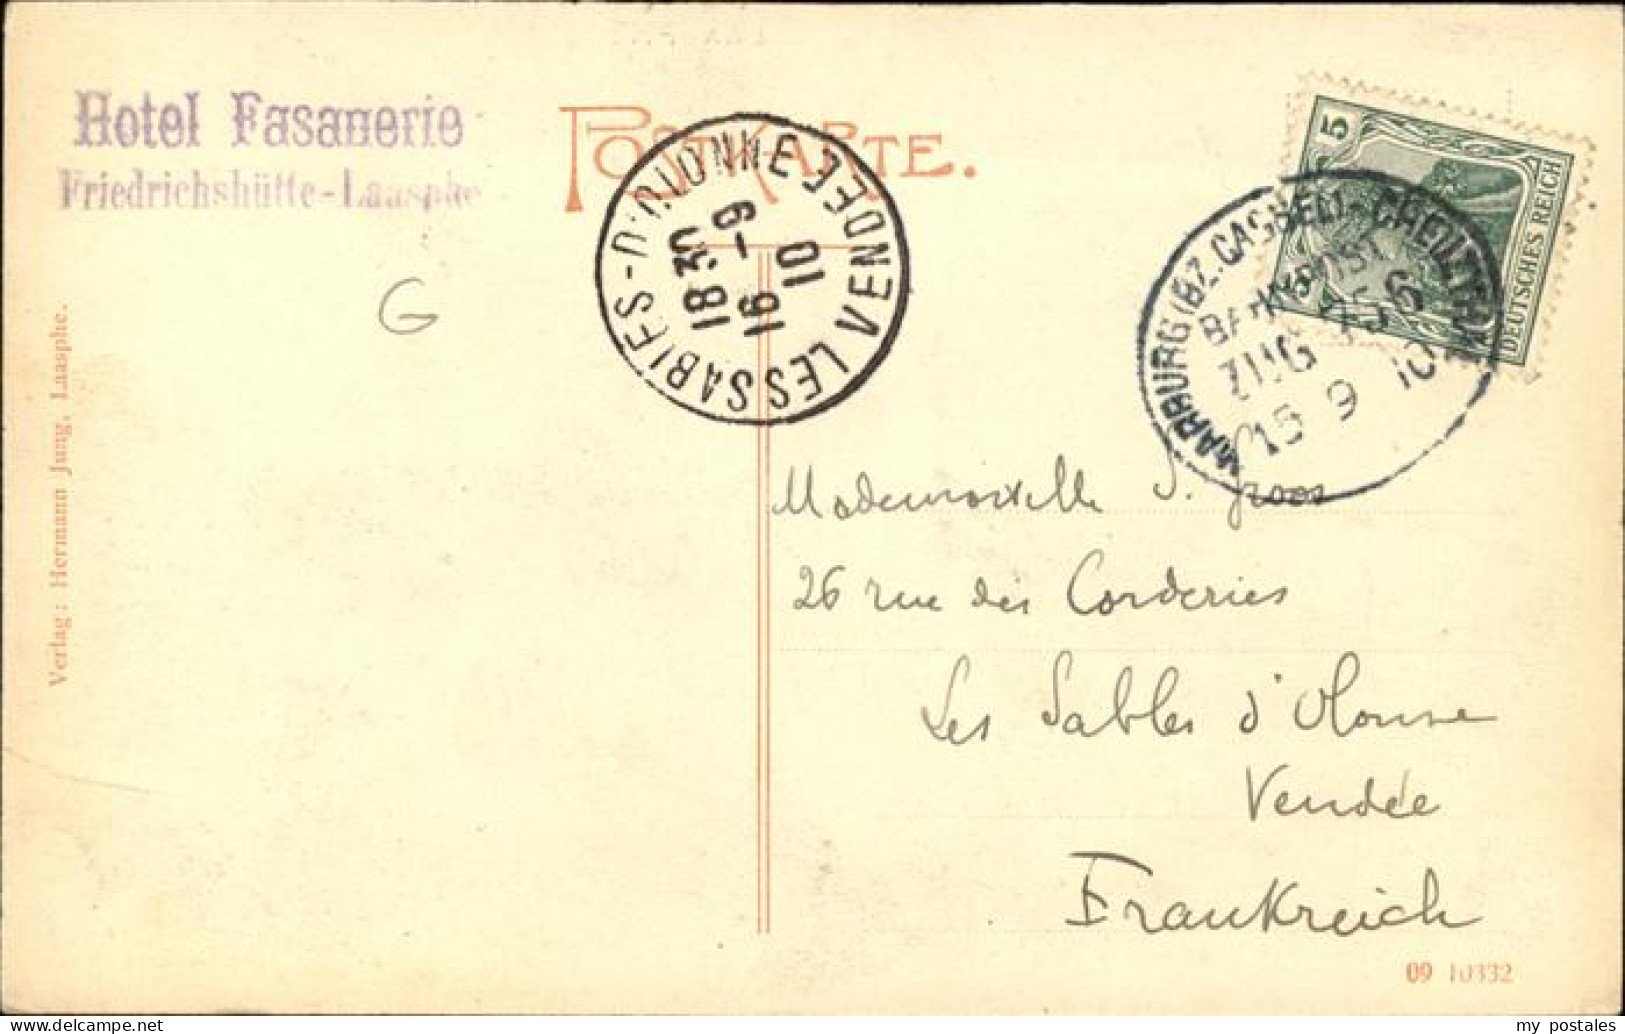 Hotel Fasanerie
Friedrichshütte-Laasphe
POSTKARTE.
LES SABLES-D'OLONNE VENDEE
18 30
16 -9
10
5
DEUTSCHES REICH
MARBURG (BZ. CASSEL)-CREUZTHAL
BAHNPOST
ZUG
15 9 10
Verlag: Hermann Jung, Laasphe.
G
Mademoiselle
26 rue des Corderies
Les Sables d'Olonne
Vendée
Frankreich
09 10332
my postales